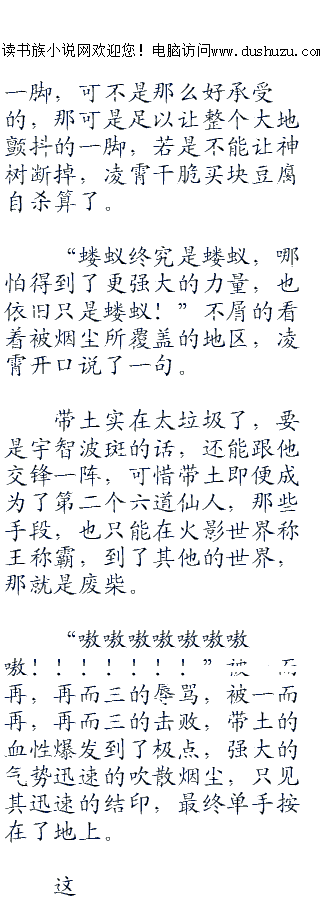 读书族小说网欢迎您！电脑访问www.dushuzu.com
一脚，可不是那么好承受
的，那可是足以让整个大地
颤抖的一脚，若是不能让神
树断掉，凌霄干脆买块豆腐
自杀算了。
“蝼蚁终究是蝼蚁，哪
怕得到了更强大的力量，也
依旧只是蝼蚁！”不屑的看
着被烟尘所覆盖的地区，凌
霄开口说了一句。
带土实在太垃圾了，要
是宇智波斑的话，还能跟他
交锋一阵，可惜带土即便成
为了第二个六道仙人，那些
手段，也只能在火影世界称
王称霸，到了其他的世界，
那就是废柴。
“嗷嗷嗷嗷嗷嗷嗷
嗷！！！！！！！”被一而
再，再而三的辱骂，被一而
再，再而三的击败，带土的
血性爆发到了极点，强大的
气势迅速的吹散烟尘，只见
其迅速的结印，最终单手按
在了地上。
这